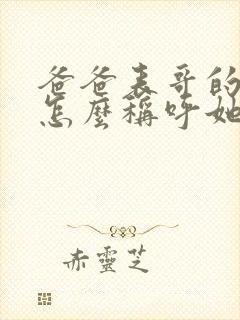 爸爸表哥的
怎麼稱呼她
赤靈芝